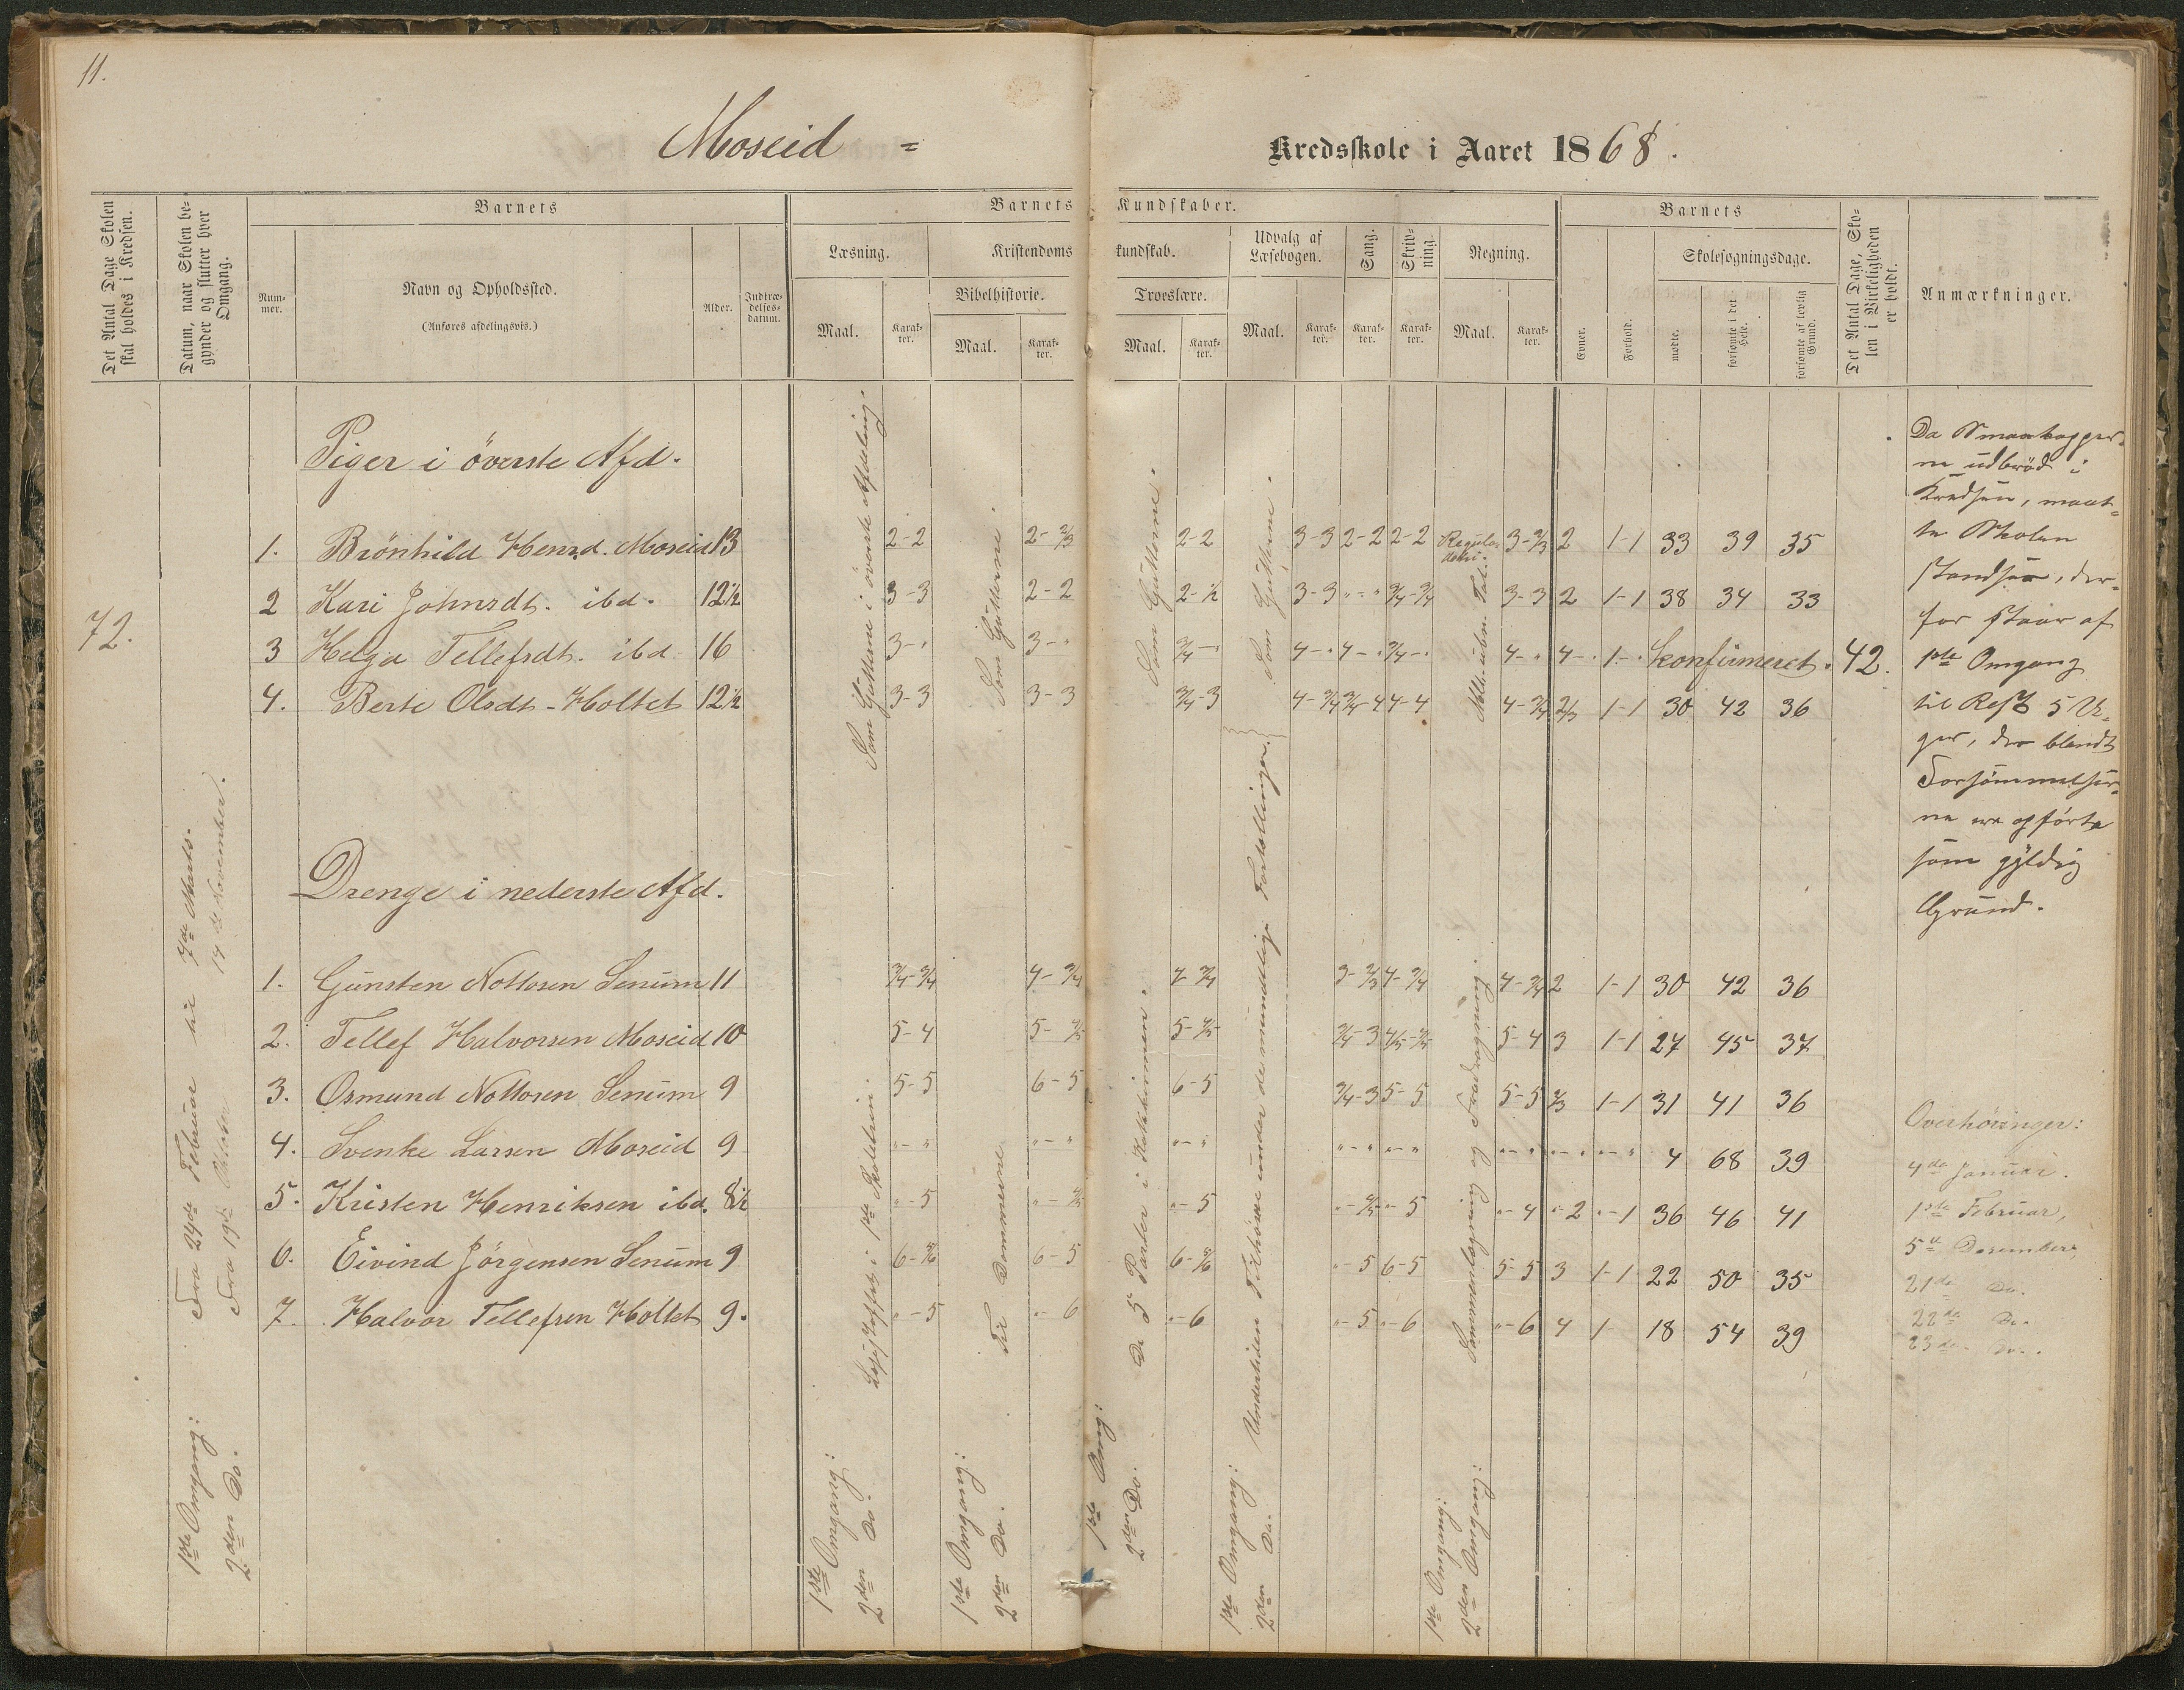 11.
Moseid =
Kredsskole i Aaret 1868.
Det Antal Dage Skolen skal holdes i Kredsen.
Datum, naar Skolen begynder og slutter hver Omgang.
Barnets
Nummer.
Navn og Opholdssted.
(Anføres afdelingsvis.)
Alder.
Indtrædelsesdatum.
Barnets Kundskaber.
Læsning.
Maal.
Karakter.
Kristendomskundskab.
Bibelhistorie.
Maal.
Karakter.
Troeslære.
Maal.
Karakter.
Udvalg af Læsebogen.
Maal.
Karakter.
Sang.
Karakter.
Skrivning.
Karakter.
Regning.
Maal.
Karakter.
Barnets
Evner.
Forhold.
Skolesøgningsdage.
mødte.
forsømte i det Hele.
forsømte af lovlig Grund.
Det Antal Dage, Skolen i Virkeligheden er holdt.
Anmærkninger.
72.
1ste Omgang: Fra 29de Februar til 7de Marts.
2den Do. Fra 19de Oktober 14de November.
Piger i överste Afd.
1. Brönhild Henrd. Moseid 13 2-2 2-2/3 2-2 3-3 2-2 2-2 3-2/3 2 1-1 33 39 35
2 Kari Johnsdt. ibd. 12 1/2 3-3 2-2 2-1/2 3-3 "-" 3/4-3/4 3-3 2 1-1 38 34 33
3 Helga Tellefsdt. ibd. 16 3-" 3-" 3/4-" 4-" 4-" 3/4-" 4-" 4-" 1-" konfirmeret. 42.
4. Berte Olsdt - Holtet 12 1/2 3-3 3-3 3/4-3 4-3/4 3/4-4 4-4 4-3/4 2/3 1-1 30 42 36
Som Gutterne i överste Afdeling.
Som Gutterne.
Som Gutterne.
Som Gutterne.
Drenge i nederste Afd.
1. Gunsten Nottosen Senum 11 3/4-3/4 4-3/4 4-3/4 3-2/3 4-3/4 4-3/4 2 1-1 30 42 36
2. Tellef Halvorsen Moseid 10 5-4 5-4/5 5-4/5 3/4-3 4/5-4/5 5-4 3 1-1 27 45 37
3. Osmund Nottosen Senum 9 5-5 6-5 6-5 3/4-3 5-5 5-5 2/3 1-1 31 41 36
4. Svenke Larsen Moseid 9 "-" "-" "-" "-" "-" "-" "-" "-" 4 68 39
5. Kristen Henriksen ibd. 8 1/2 "-5 "-4/5 "-5 "-4/5 "-5 "-4 "-2 "-1 36 46 41
6. Eivind Jörgensen Senum 9 6-5/6 6-5 6-5/6 "-5 6-5 5-5 3 1-1 22 50 35
7. Halvor Tellefsen Holtet 9. "-5 "-6 "-6 "-5 "-6 "-6 4 1- 18 54 39
1ste Omgang:
2den Do.
1ste Omgang:
2den Do. Til Dommerne
1ste Omg:
2den Do. De 5 Parter i Katekismen.
1ste Omgang: Undertiden Tilhörere under de mundtlige Fortællinger.
2den Do.
1ste Omgang:
2den Omgang: Sammenlægning og Fradragning.
Da Smaakopper-
ne udbröd i
Kredsen, maat-
te Skolen
standse, der-
for staar af
1ste Omgang
til Rest 5 U-
ger, der blandt
Forsömmelser-
ne ere opförte
som gyldig
Grund.
Overhöringer:
4de Januar.
1ste Februar,
5te Desember,
21de Do.
22de Do.
23de Do.